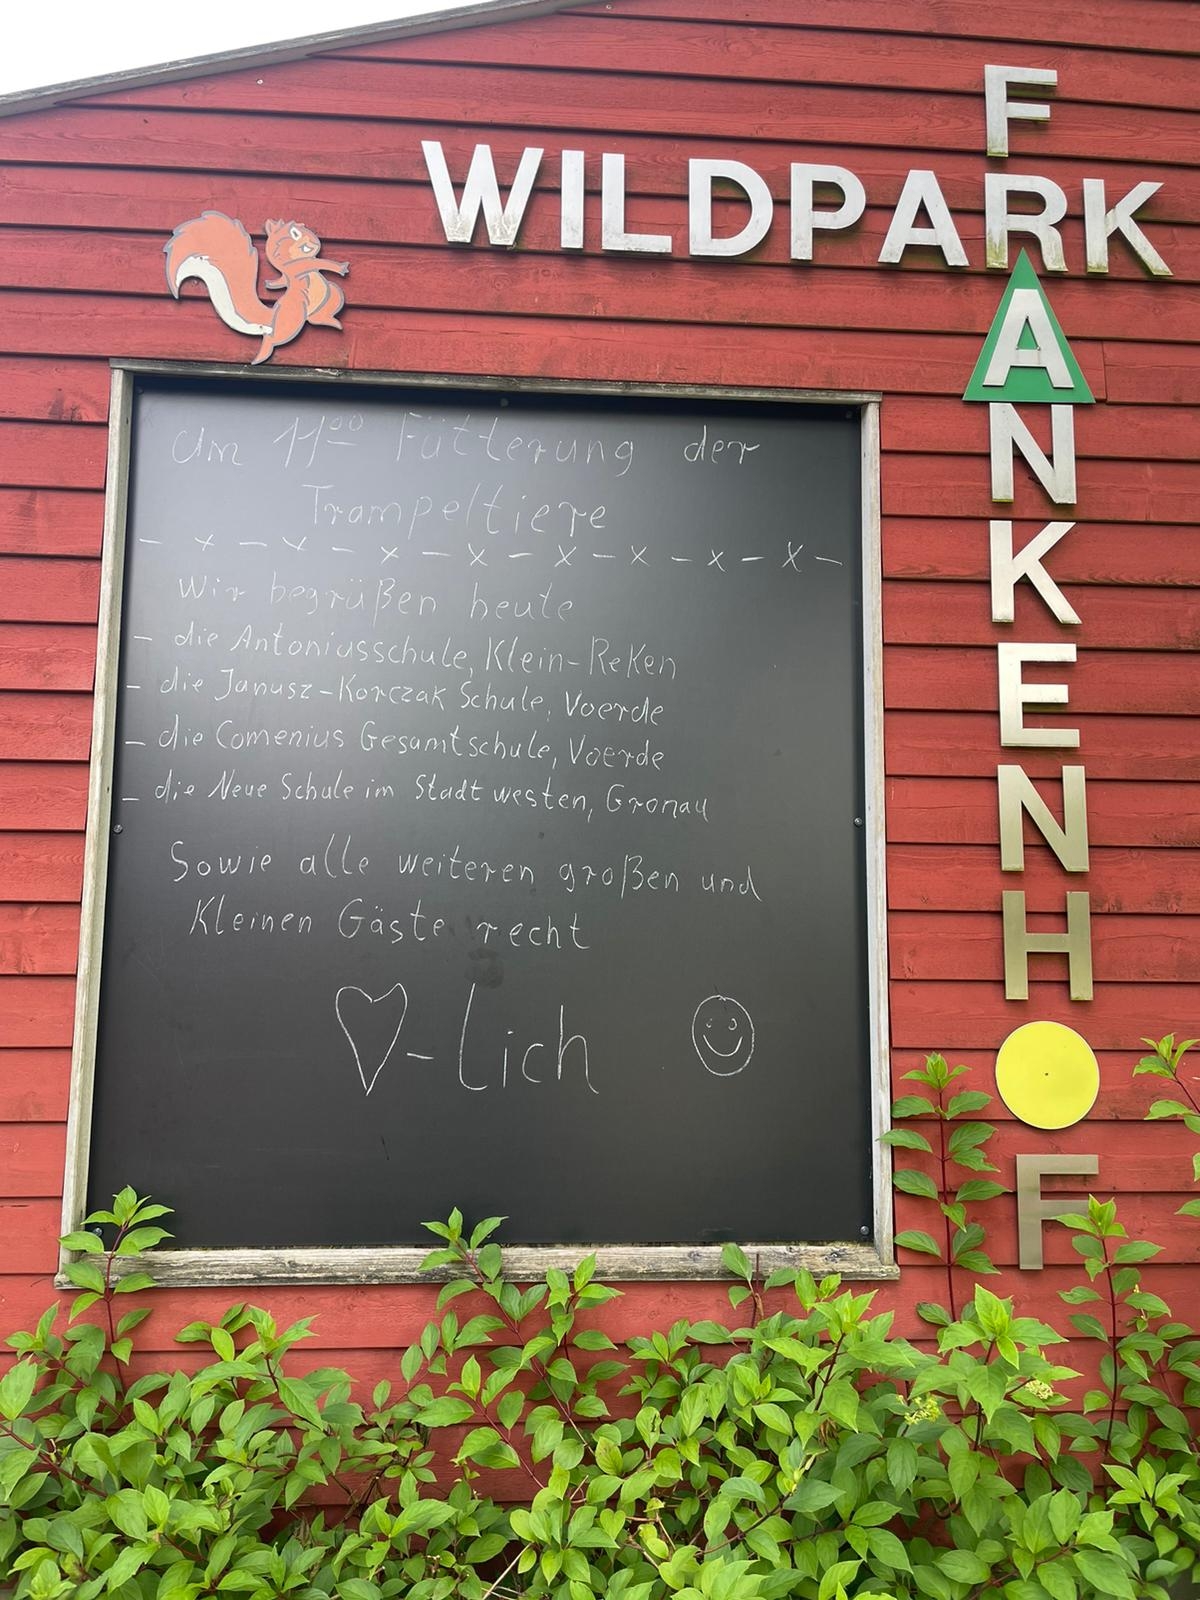 WILDPARK
FRANKENHOF
Um 11⁰⁰ Fütterung der
Trampeltiere
– x – x – x – x – x – x – x – x –
Wir begrüßen heute
– die Antoniusschule, Klein-Reken
– die Janusz-Korczak Schule, Voerde
– die Comenius Gesamtschule, Voerde
– die Neue Schule im Stadtwesten, Gronau
Sowie alle weiteren großen und
Kleinen Gäste recht
♡-lich ☺